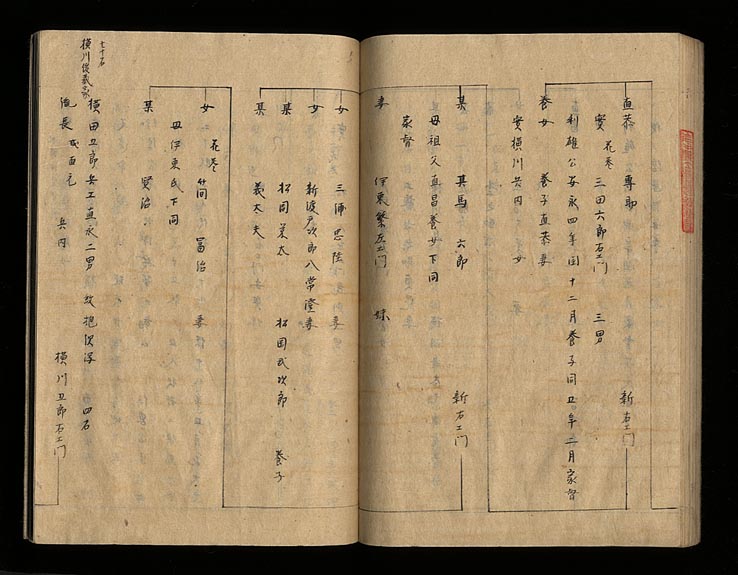 直恭 専助 新右エ門
実 花巻 三田六郎右エ門 三男
利雄公安永四年閏十二月養子同五年二月家督
養女 養子直恭妻
実横川兵内 女
某 其馬 六郎 新右エ門
母祖父直昌養女下同
家督
妻 伊東繁左エ門 妹
女 三浦忠陸 妻
女 新渡戸次郎八常澄妻
某 松岡民次郎 養子
某 義太夫
女 花巻 冨治 妻
母伊東氏下同
某 賢治
七十石
横川俊蔵家
横田卫郎兵エ直永二男 四石
兵内 横川卫郎右エ門